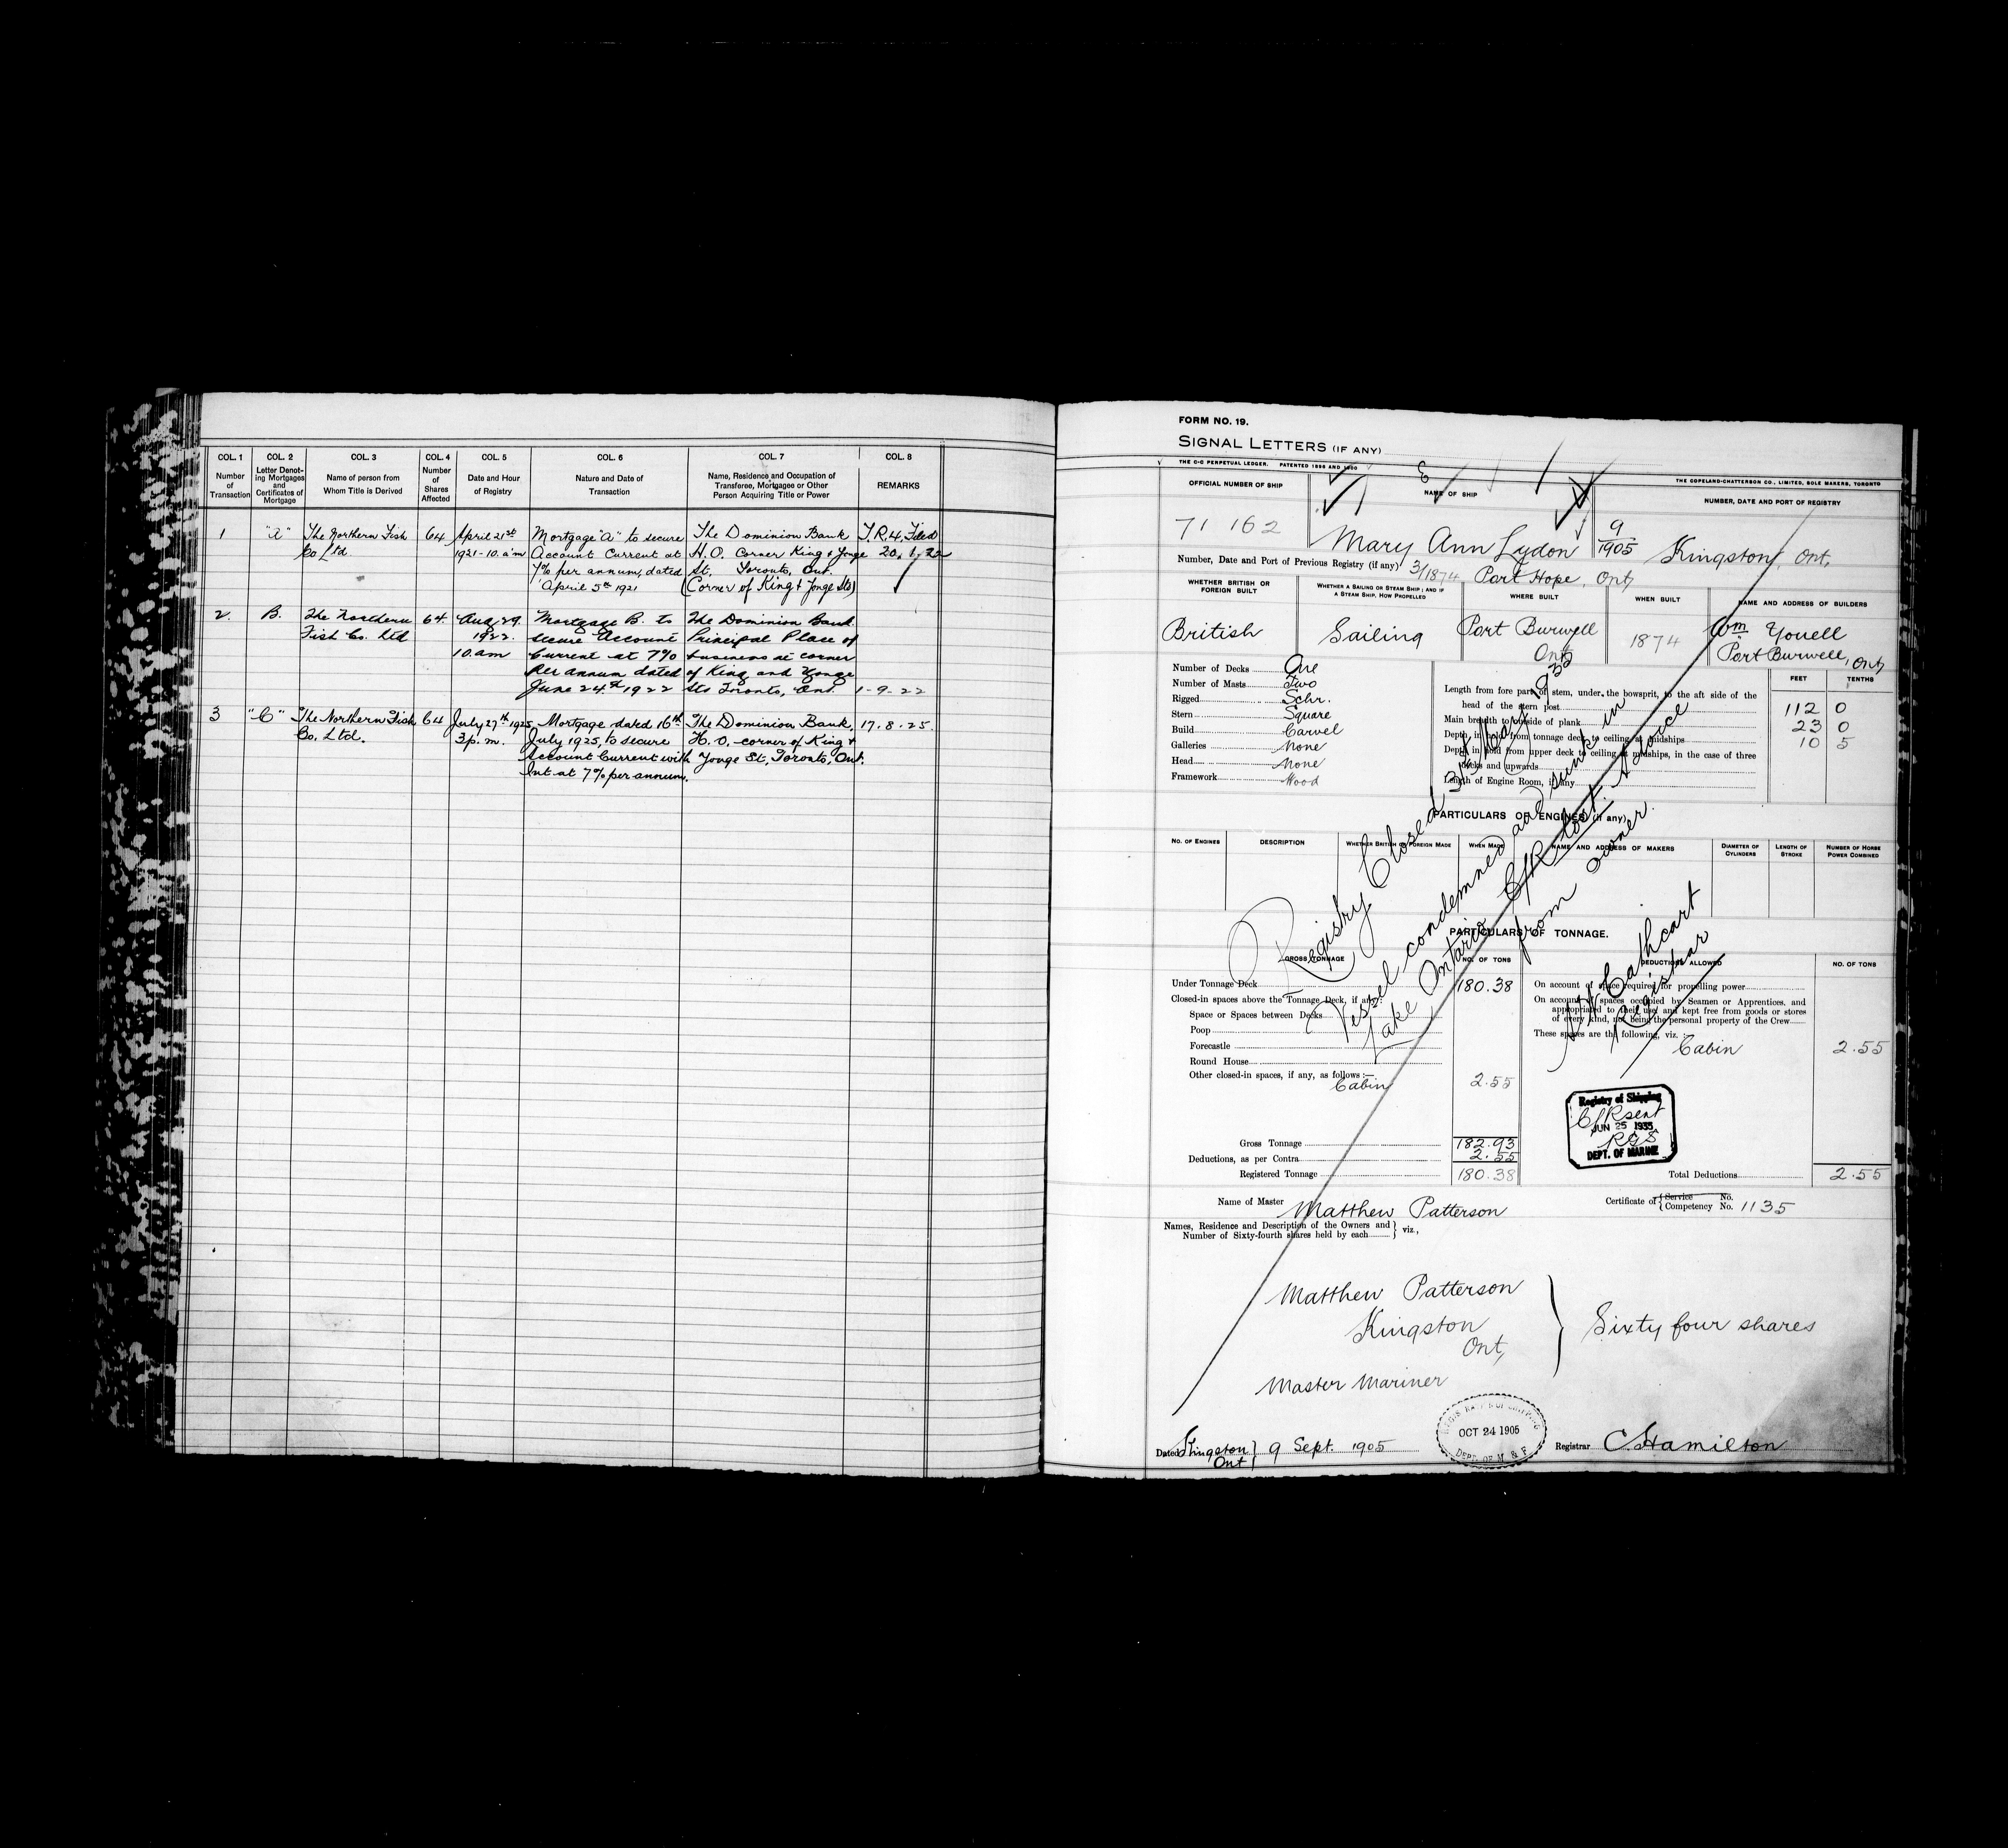 COL. 1 COL. 2 COL. 3 COL. 4 COL. 5 COL. 6 COL. 7 COL. 8
Number of Transaction
Letter Denoting Mortgages and Certificates of Mortgage
Name of person from Whom Title is Derived
Number of Shares Affected
Date and Hour of Registry
Nature and Date of Transaction
Name, Residence and Occupation of Transferee, Mortgagee or Other Person Acquiring Title or Power
REMARKS
1 "A" The Northern Fish 64 April 21st Mortgage "A" to secure The Dominion Bank T.R.4. Filed
Co Ltd. 1921-10. a.m Account Current at H.O. Corner King & Yonge 20.1.22
7% per annum, dated St. Toronto, Ont.
April 5th 1921 (Corner of King & Yonge Sts)
2. B. The Northern 64. Aug. 29. Mortgage B. to The Dominion Bank
Fish Co. Ltd 1922. secure Account Principal Place of
10.am Current at 7% business at corner
per annum dated of King and Yonge
June 24th 1922 Sts Toronto, Ont. 1-9-22
3 "C" The Northern Fish 64 July 27th 1925, Mortgage dated 16th The Dominion Bank, 17.8.25.
Co. Ltd. 3 p.m. July 1925, to secure H.O. corner of King &
Account Current with Yonge St, Toronto, Ont.
Int at 7% per annum.
FORM NO. 19.
SIGNAL LETTERS (IF ANY)
THE C-C PERPETUAL LEDGER. PATENTED 1896 AND 1900
THE COPELAND-CHATTERSON CO., LIMITED, SOLE MAKERS, TORONTO
OFFICIAL NUMBER OF SHIP NAME OF SHIP NUMBER, DATE AND PORT OF REGISTRY
71 162 Mary Ann Lydon 9/1905 Kingston, Ont,
Number, Date and Port of Previous Registry (if any) 3/1874 Port Hope, Ont,
WHETHER BRITISH OR FOREIGN BUILT
WHETHER A SAILING OR STEAM SHIP; AND IF A STEAM SHIP, HOW PROPELLED
WHERE BUILT
WHEN BUILT
NAME AND ADDRESS OF BUILDERS
British Sailing Port Burwell Ont 1874 Wm Youell
Port Burwell, Ont,
Number of Decks One
Number of Masts Two
Rigged Schr.
Stern Square
Build Carvel
Galleries None
Head None
Framework Wood
FEET TENTHS
Length from fore part of stem, under the bowsprit, to the aft side of the
head of the stern post 112 0
Main breadth to outside of plank 23 0
Depth in hold from tonnage deck to ceiling at midships 10 5
Depth in hold from upper deck to ceiling at midships, in the case of three
decks and upwards
Length of Engine Room, if any
PARTICULARS OF ENGINES (if any)
NO. OF ENGINES DESCRIPTION WHETHER BRITISH OR FOREIGN MADE WHEN MADE NAME AND ADDRESS OF MAKERS DIAMETER OF CYLINDERS LENGTH OF STROKE NUMBER OF HORSE POWER COMBINED
Registry Closed 31st May 1935
Vessel condemned and sunk in
Lake Ontario C/R lost. Advice
from owner.
Cathcart
Registrar
PARTICULARS OF TONNAGE.
GROSS TONNAGE NO. OF TONS DEDUCTIONS ALLOWED NO. OF TONS
Under Tonnage Deck 180.38
Closed-in spaces above the Tonnage Deck, if any:
Space or Spaces between Decks
Poop
Forecastle
Round House
Other closed-in spaces, if any, as follows:—
Cabin 2.55
Gross Tonnage 182.93
Deductions, as per Contra 2.55
Registered Tonnage 180.38
On account of space required for propelling power
On account of spaces occupied by Seamen or Apprentices, and
appropriated to their use and kept free from goods or stores
of every kind, not being the personal property of the Crew
These spaces are the following, viz.
Cabin 2.55
Registry of Shipping
C/R sent
JUN 25 1935
RGS
DEPT. OF MARINE
Total Deductions 2.55
Name of Master Matthew Patterson
Certificate of { Service No.
Competency No. 1135
Names, Residence and Description of the Owners and
Number of Sixty-fourth shares held by each } viz.,
Matthew Patterson
Kingston
Ont,
Master Mariner
Sixty four shares
Dated Kingston Ont } 9 Sept. 1905
OCT 24 1905
DEPT. OF M. & F.
Registrar C Hamilton